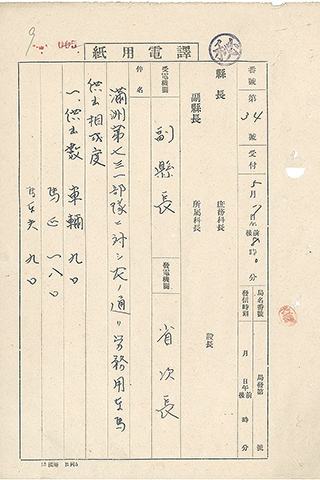 紙用電譯
秘
番號 第 34 號 受付 5月7日 午前後 8時0分
局名番號
發信時刻 月 日 午前後 時 分
局發第 號
縣長
副縣長
庶務科長
所屬科長
股長
受電機關 副縣長
發電機關 省次長
件名
滿洲第七三一部隊ニ対シ左ノ通リ労務用車馬
供出相成度
一、供出数 車輛 九〇
馬匹 一八〇
馬车夫 九〇